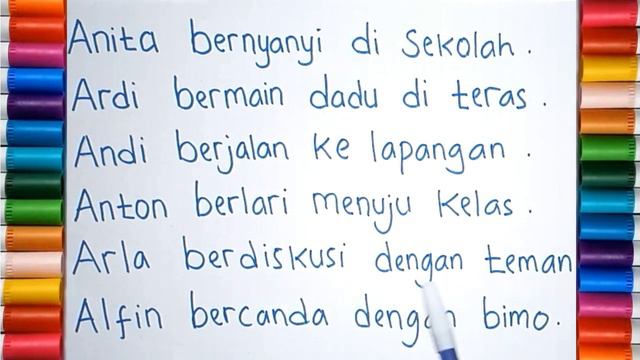 Anita bernyanyi di Sekolah.
Ardi bermain dadu di teras.
Andi berjalan ke lapangan.
Anton berlari menuju kelas.
Arla berdiskusi dengan teman
Alfin bercanda dengan bimo.